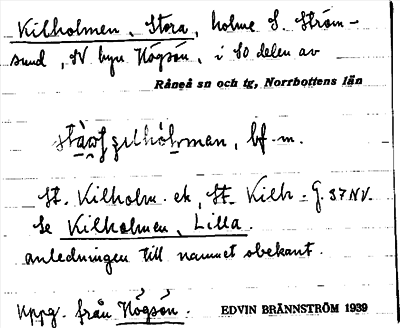 Kilholmen, Stora, holme S. Ström-
sund, SV byn Högsön, i SO delen av
Råneå sn och tg, Norrbottens län
bf. m.
St. Kilholm. ek, St. Kilh - G. 37 NV.
Se Kilholmen, Lilla.
anledningen till namnet obekant.
Uppg. från Högsön. EDVIN BRÄNNSTRÖM 1939